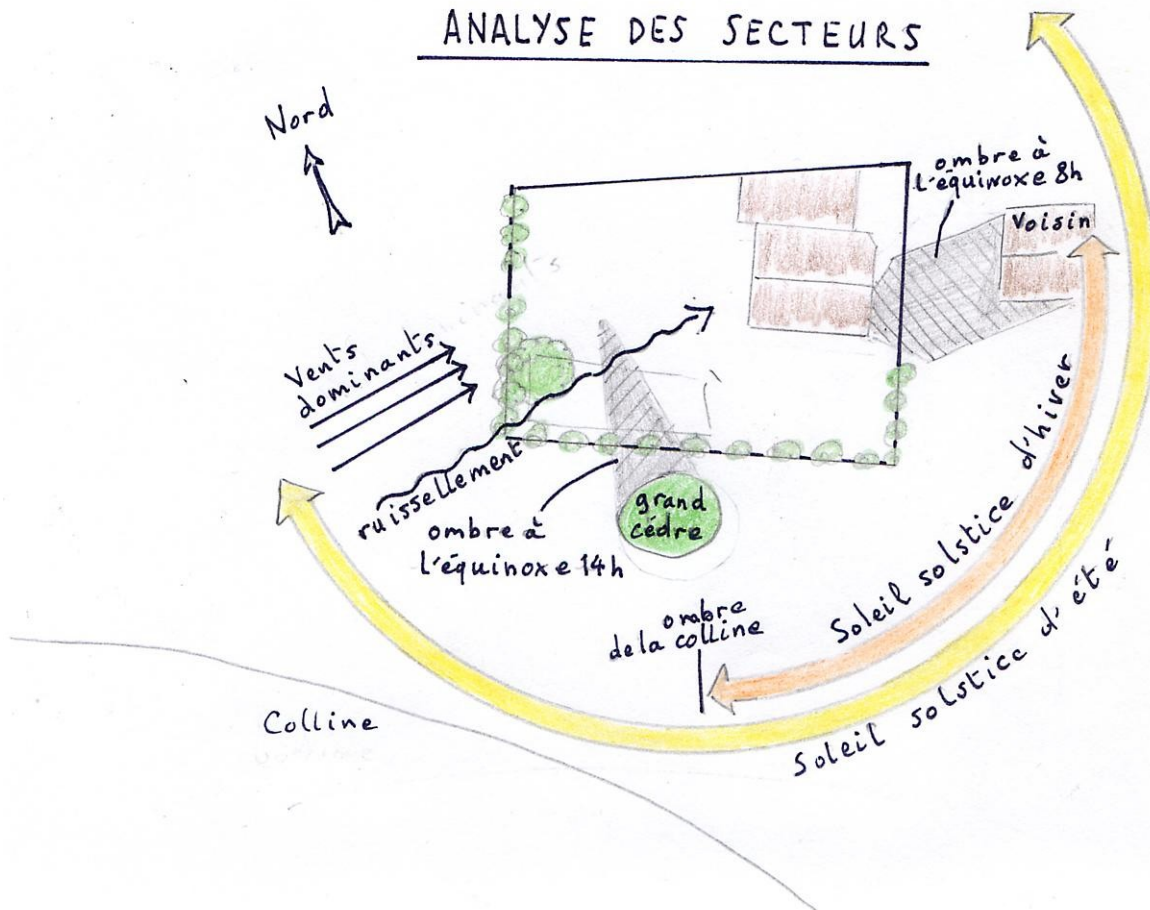 ANALYSE DES SECTEURS
Nord
ombre à
l'équinoxe 8h
Voisin
Vents
dominants
ruissellement
ombre à
l'équinoxe 14h
grand
cédre
ombre
de la colline
Soleil solstice d'hiver
Soleil solstice d'été
Colline